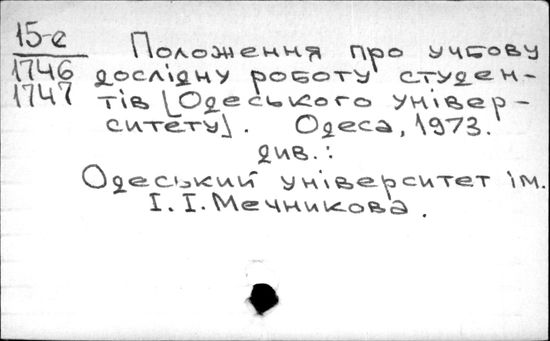 15-е Положення про учбову
1746 дослідну роботу студен-
1747 тів [Одеського універ-
ситету]. Одеса, 1973.
див.:
Одеський університет ім.
І. І. Мечникова.